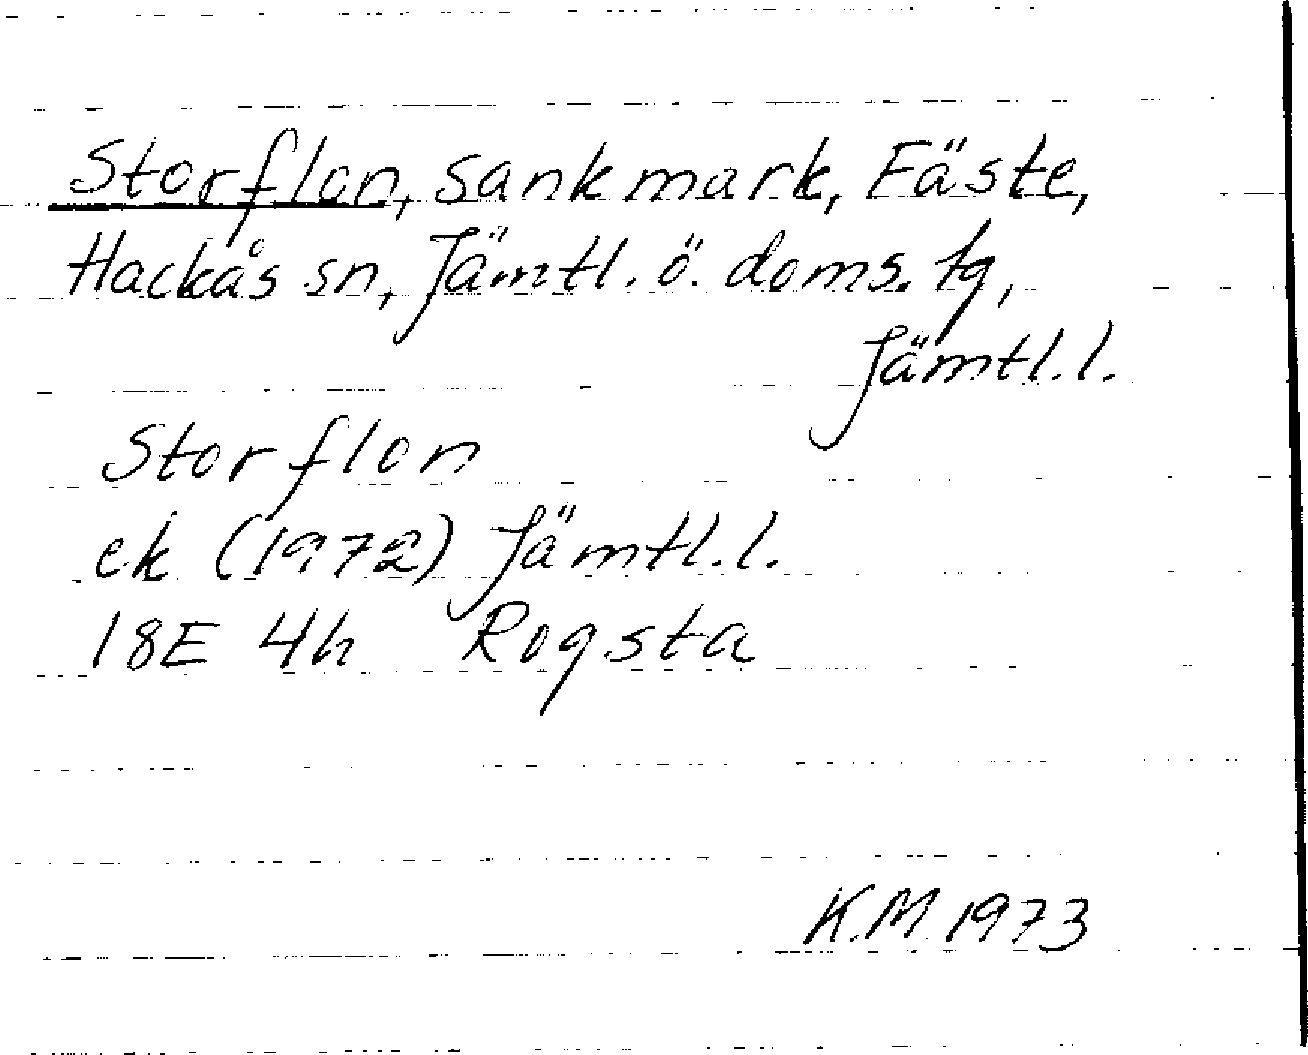 Storflon, sankmark, Fäste,
Hackås sn, Jämtl. ö. doms. tg,
Jämtl. l.
Storflon
ek (1972) Jämtl. l.
18E 4h Rogsta
K.M. 1973